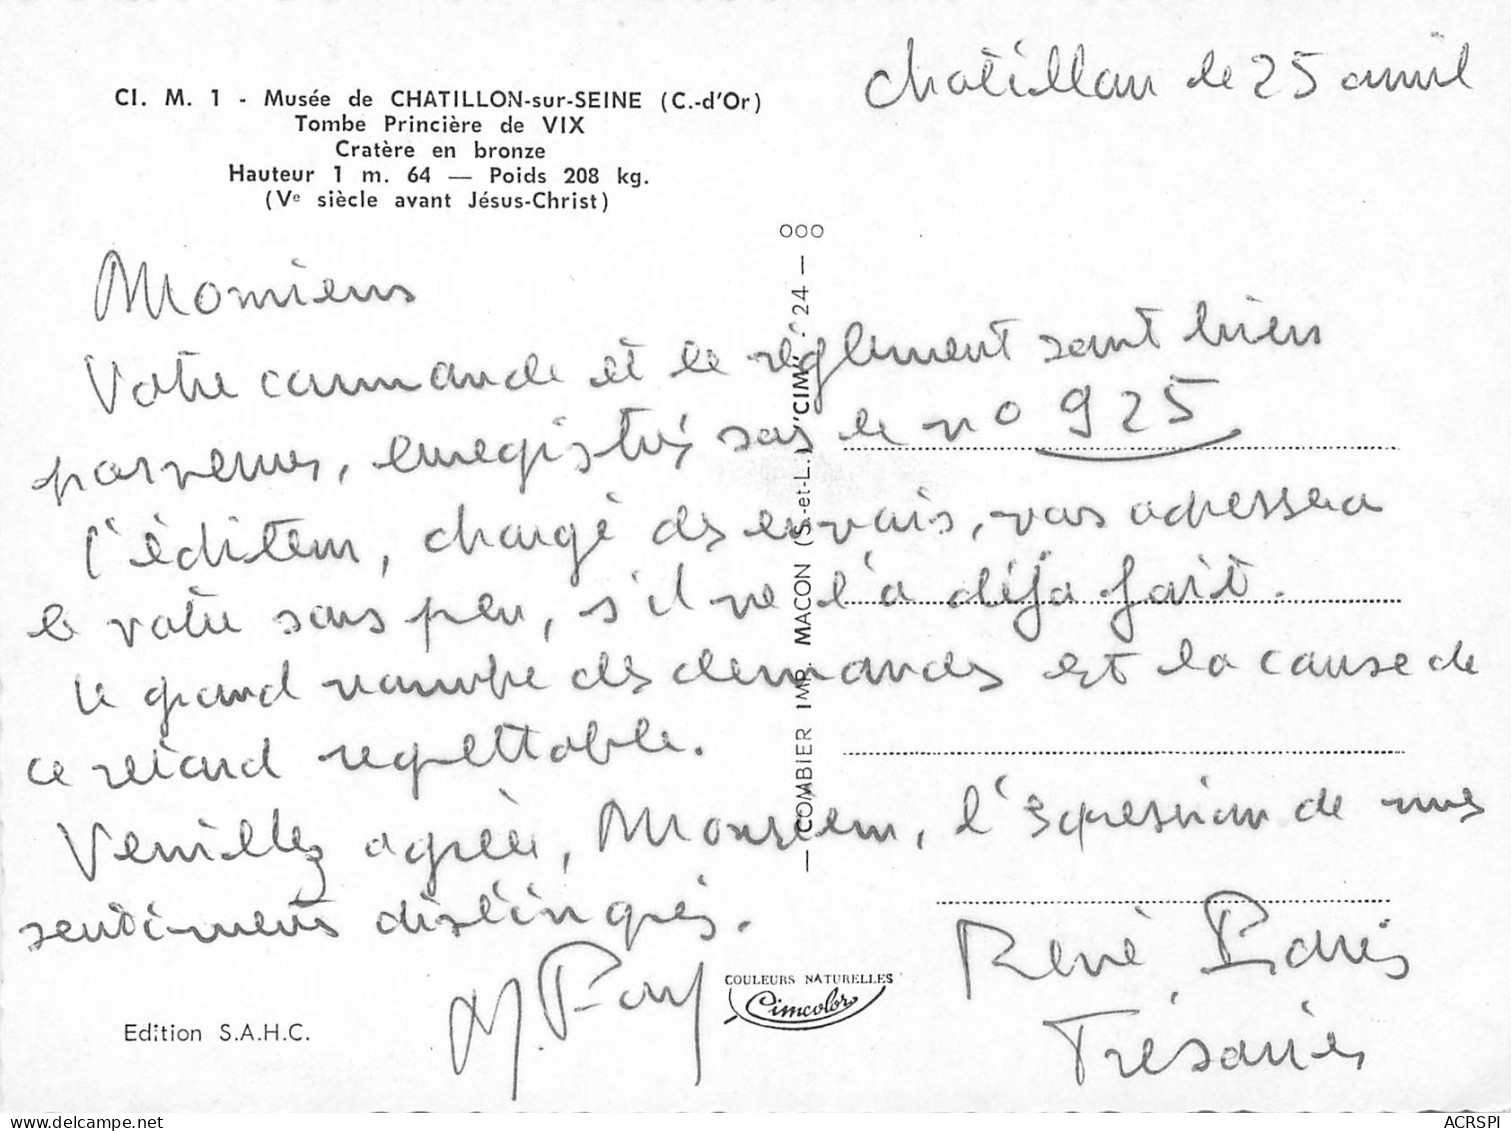 Cl. M. 1 - Musée de CHATILLON-sur-SEINE (C.-d'Or)
Tombe Princière de VIX
Cratère en bronze
Hauteur 1 m. 64 — Poids 208 kg.
(Ve siècle avant Jésus-Christ)
Chatillon le 25 avril
Monsieur
Votre commande et le règlement sont bien
parvenus, enregistrés sous le no 925
l'éditeur, chargé des envois, vous adressera
le votre sous peu, s'il ne l'a déjà fait.
le grand nombre des demandes est la cause de
ce retard regrettable.
Veuillez agréer, Monsieur, l'expression de mes
sentiments distingués.
René Paris
Trésorier
000
— COMBIER IMP. MACON (S.-et-L.) "CIM" - 24 —
COULEURS NATURELLES
Cimcolor
Edition S.A.H.C.
ACRSPI